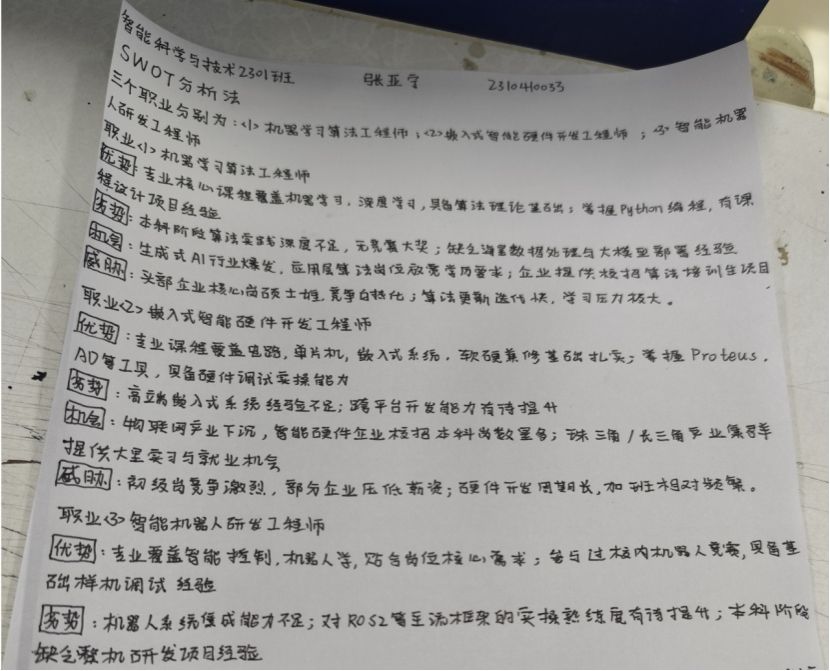 智能科学与技术2301班 张亚宁 2310410033
SWOT分析法
三个职业分别为：<1>机器学习算法工程师；<2>嵌入式智能硬件开发工程师；<3>智能机器
人研发工程师
职业<1>机器学习算法工程师
优势：专业核心课程覆盖机器学习，深度学习，具备算法理论基础；掌握Python编程，有课
程设计项目经验
劣势：本科阶段算法实践深度不足，无竞赛大奖；缺乏海量数据处理与大模型部署经验
机会：生成式AI行业爆发，应用层算法岗位放宽学历要求；企业提供校招算法培训生项目
威胁：头部企业核心岗硕士堆，竞争白热化；算法更新迭代快，学习压力极大。
职业<2>嵌入式智能硬件开发工程师
优势：专业课程覆盖电路，单片机，嵌入式系统，软硬兼修基础扎实；掌握Proteus，
AD等工具，具备硬件调试实操能力
劣势：高端嵌入式系统经验不足；跨平台开发能力有待提升
机会：物联网产业下沉，智能硬件企业校招本科岗数量多；珠三角/长三角产业集群
提供大量实习与就业机会
威胁：初级岗竞争激烈，部分企业压低薪资；硬件开发周期长，加班相对频繁。
职业<3>智能机器人研发工程师
优势：专业覆盖智能控制，机器人学，贴合岗位核心需求；参与过校内机器人竞赛，具备基
础样机调试经验
劣势：机器人系统集成能力不足；对ROS2等主流框架的实操熟练度有待提升；本科阶段
缺乏整机研发项目经验